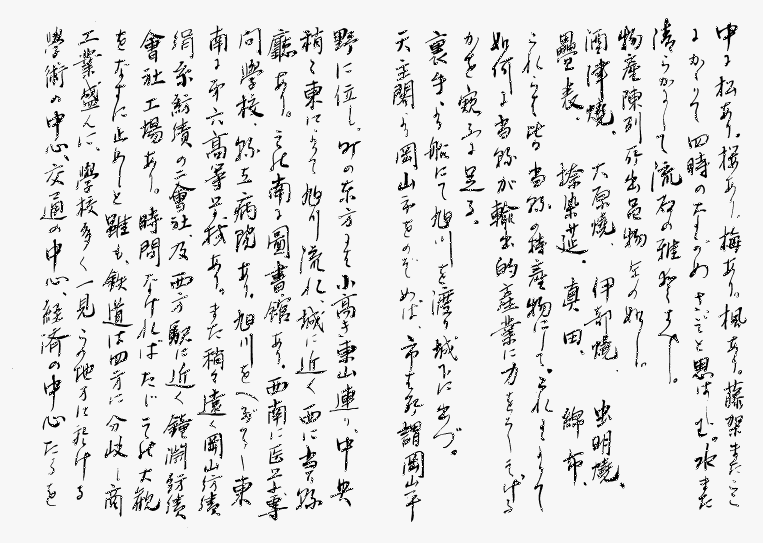 中に松あり。桜あり。梅あり。楓あり。藤架またこゝ
にかゝりて四時のながめさこそと思はしむ。水また
清らかにして流石の雅致を
物産陳列所出品物左の如し。
酒津焼、大原焼、伊部焼、虫明焼、
畳表、捺染莚、真田、綿布、
これらを皆当縣の特産物にして、これをもつて
如何に当縣が輸出的産業に力をそゝげる
かを窺ふに足る。
裏手より船にて旭川を渡り城下に出づ。
天主閣より岡山市をのぞめば、市は所謂岡山平
野に位し、町の東方はるか小高き東山連り、中央
稍々東によりて旭川流れ城に近く西に当り縣
廳あり。その南に圖書館あり、西南に医学専
問學校、縣立病院あり、旭川を東
南に第六高等学校あり。また稍々遠く岡山紡績
絹糸紡績の二會社及西方駅に近く鐘淵紡績
會社工場あり。時間なければたゞその大観
をなすに止りしと雖も、鉄道は四方に分岐し商
工業盛んに、學校多く一見この地方に於ける
學術の中心、交通の中心、経済の中心たるを